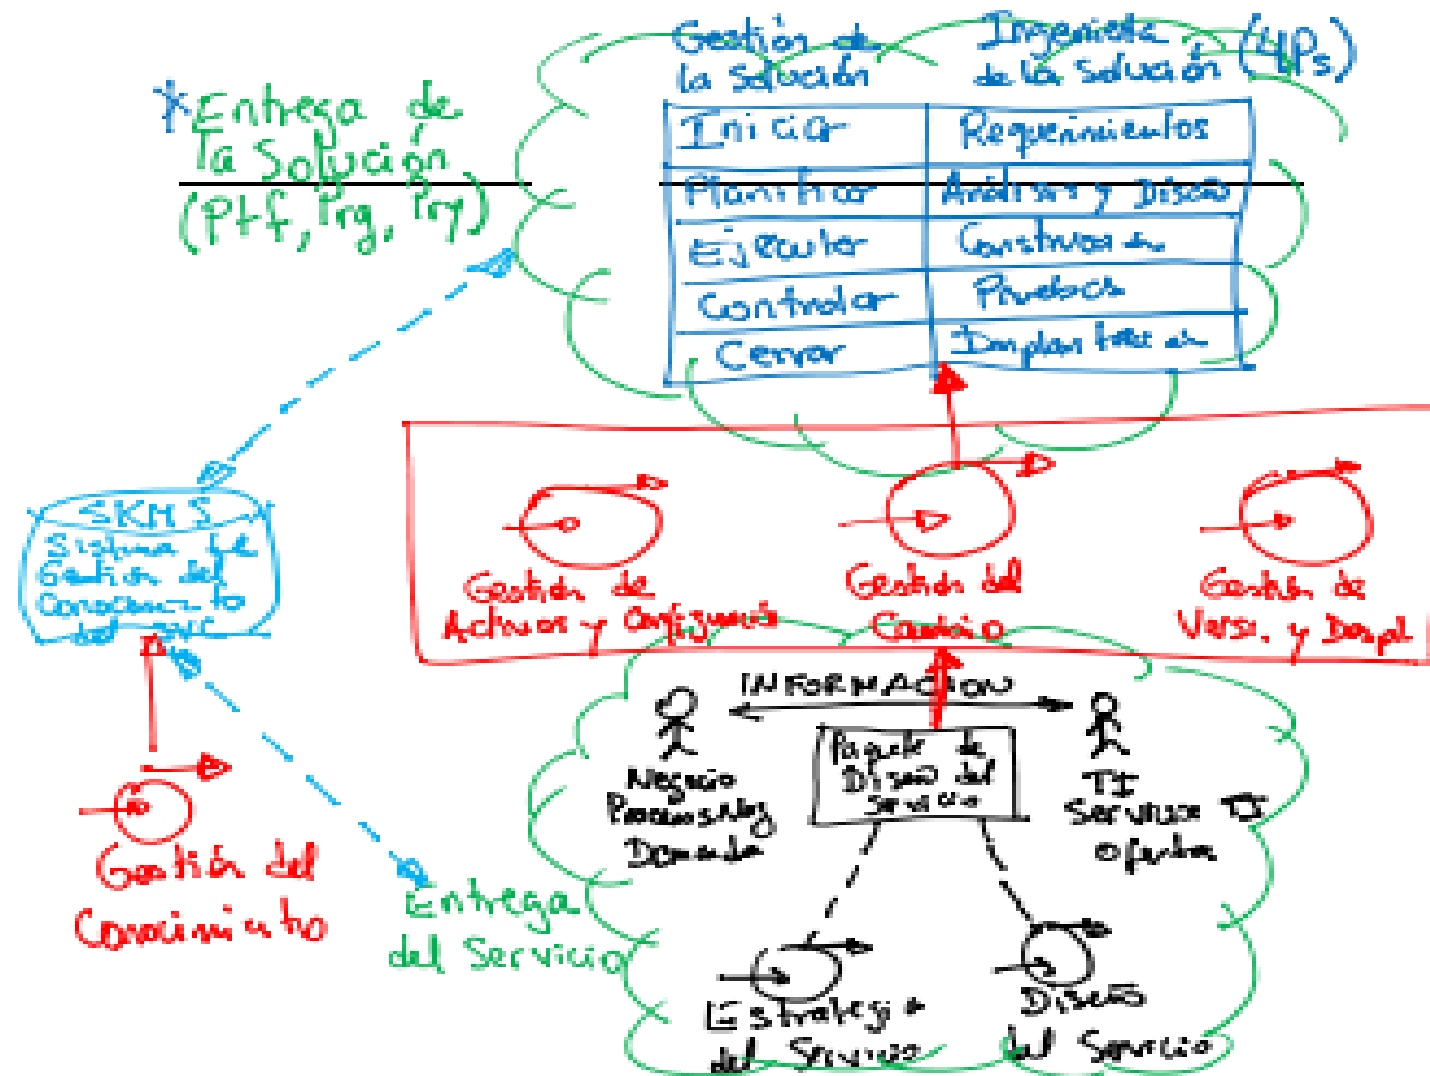 Gestión de
la Solución
Ingeniería
de la Solución
(4Ps)
*Entrega de
la Solución
(Ptf, Prg, Pry)
Iniciar
Requerimientos
Planificar
Análisis y Diseño
Ejecutar
Construcción
Controlar
Pruebas
Cerrar
Implantación
SKMS
Sistema de
Gestión del
Conocimiento
del SVC
Gestión de
Activos y Configuración
Gestión del
Cambio
Gestión de
Vers. y Despl
INFORMACION
Paquete de
Diseño del
Servicio
Negocio
Procesos Neg
Demanda
TI
Servicios TI
Oferta
Gestión del
Conocimiento
Entrega
del Servicio
Estrategia
del Servicio
Diseño
del Servicio